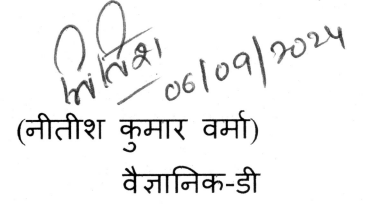 नितिश 06/09/2024
(नीतीश कुमार वर्मा)
वैज्ञानिक-डी